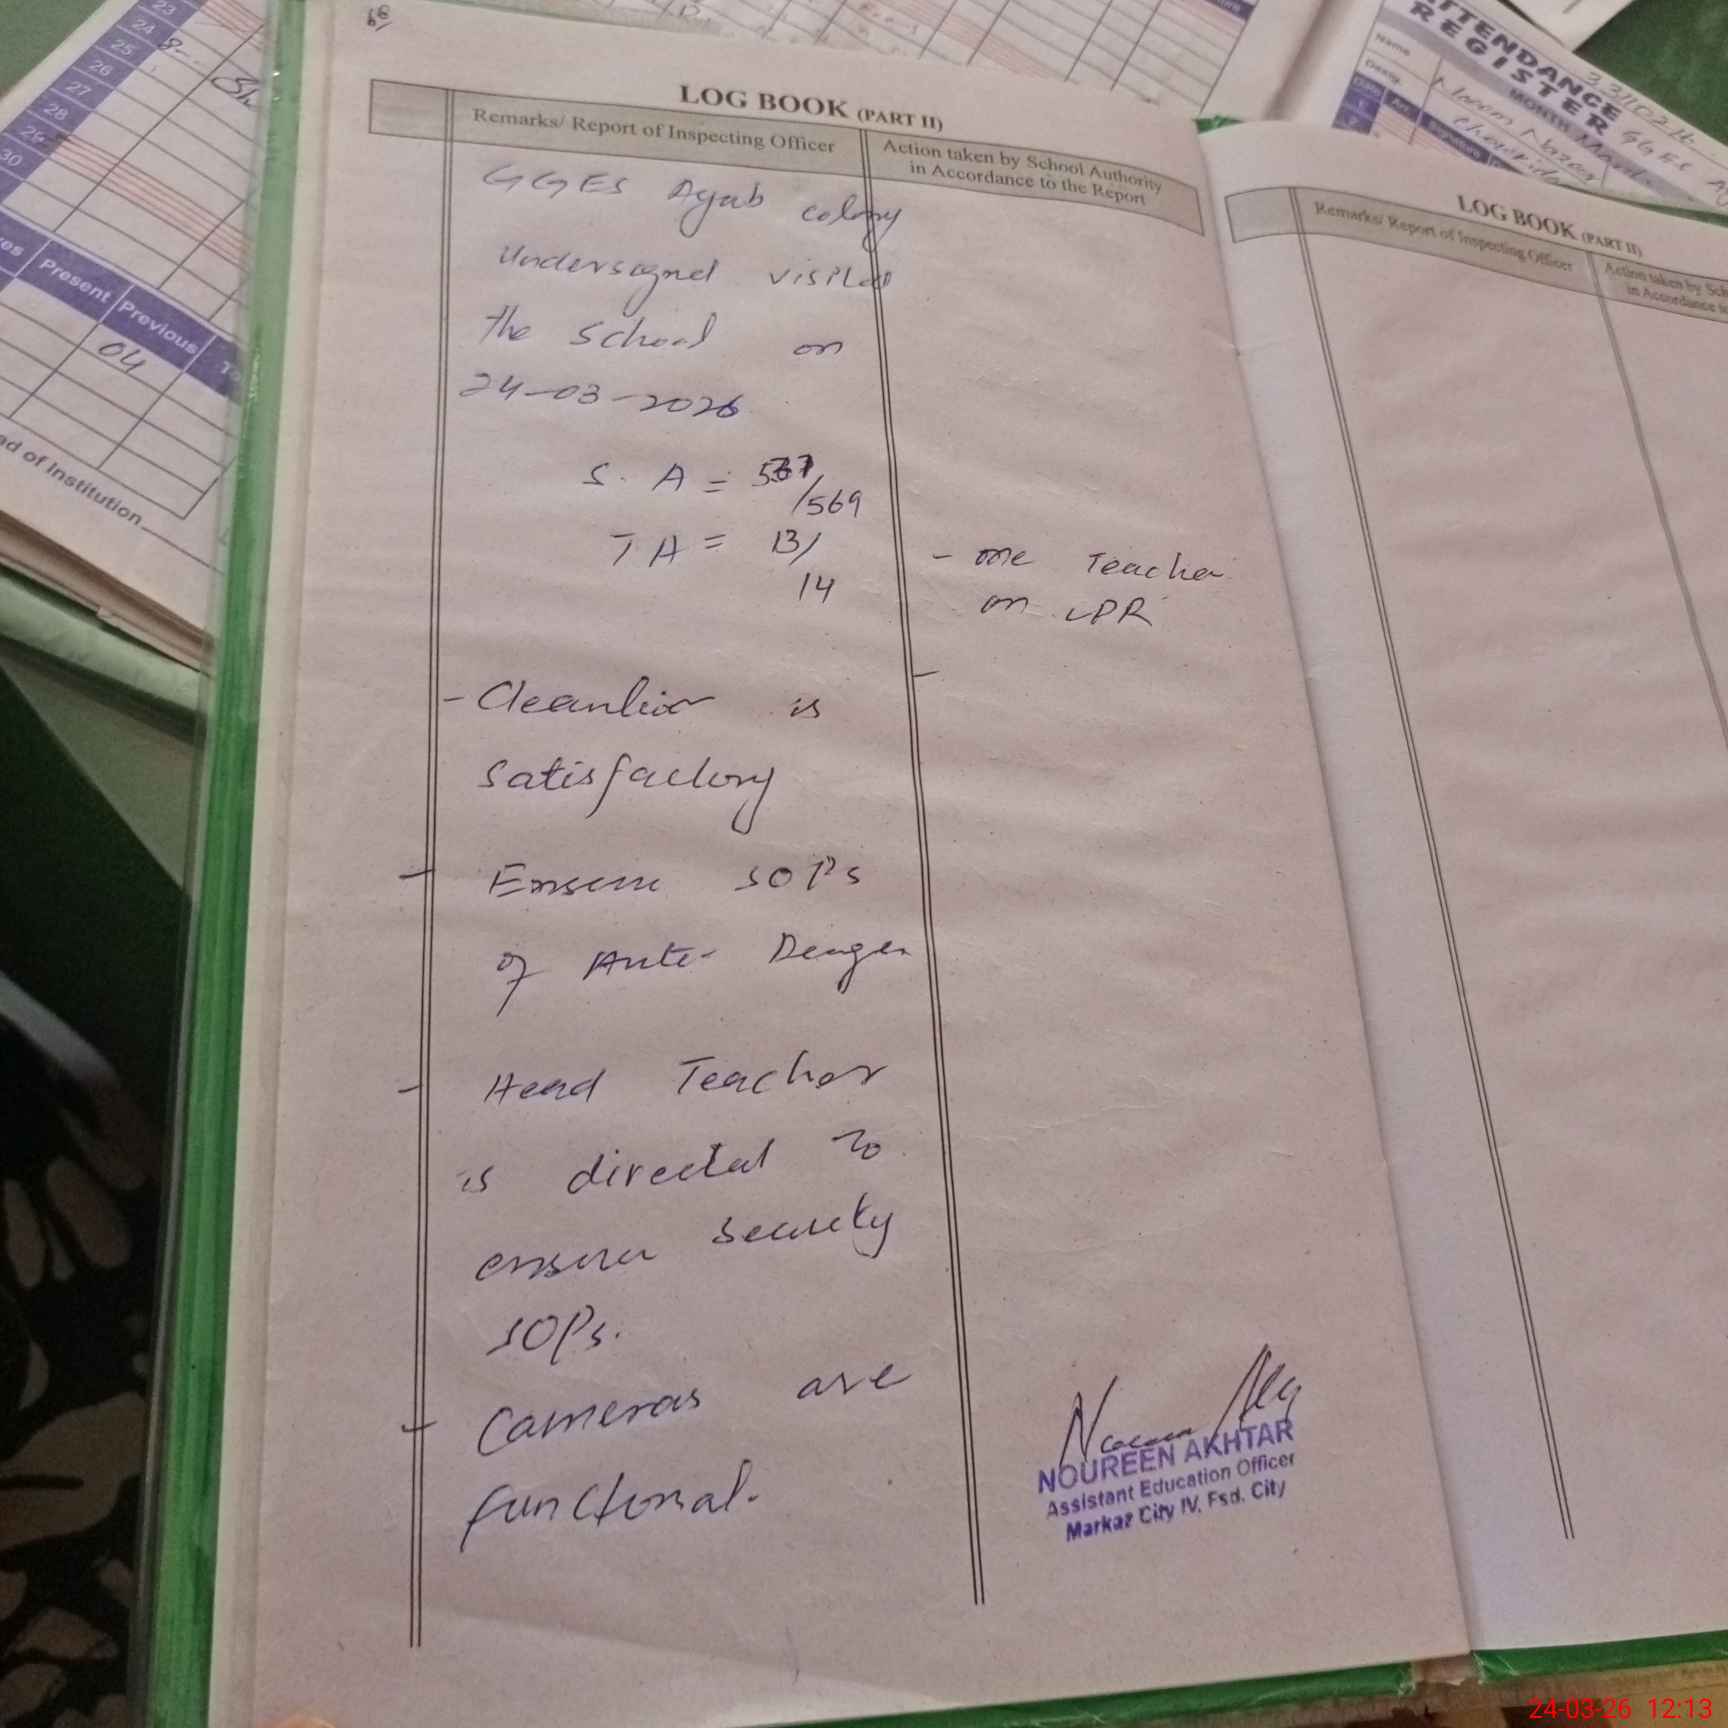 68
LOG BOOK (PART II)
Remarks/ Report of Inspecting Officer
Action taken by School Authority
in Accordance to the Report
GGES Ayub colony
Undersigned visited
the school on
24-03-2026
S. A =
/569
T A = 13/
14
- one Teacher
on LPR
- Cleanlines is
satisfactory
- Ensure SOPs
of Anti- Dengue
- Head Teacher
is directed to
ensure security
SOPs.
- Cameras are
functional.
NOUREEN AKHTAR
Assistant Education Officer
Markaz City IV, Fsd. City
LOG BOOK (PART II)
Remarks/ Report of Inspecting Officer
Action taken by Sch
in Accordance to
23
24
25
26
27
28
29
30
Present
Previous
04
ad of Institution
ATTENDANCE
REGISTER
Name
Desig.
MONTH
24-03-26 12:13